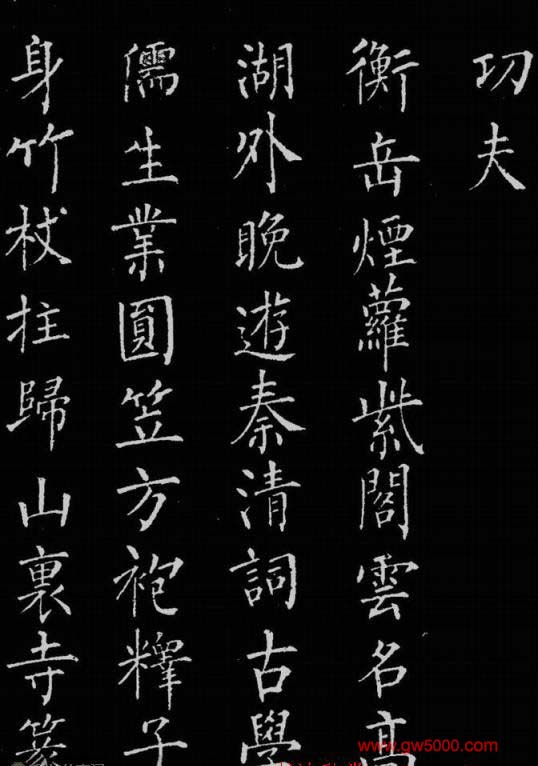 功夫
衡岳煙蘿紫閣雲名高
湖外晚遊秦清詞古學
儒生業圓笠方袍釋子
身竹杖拄歸山裏寺
www.gw5000.com